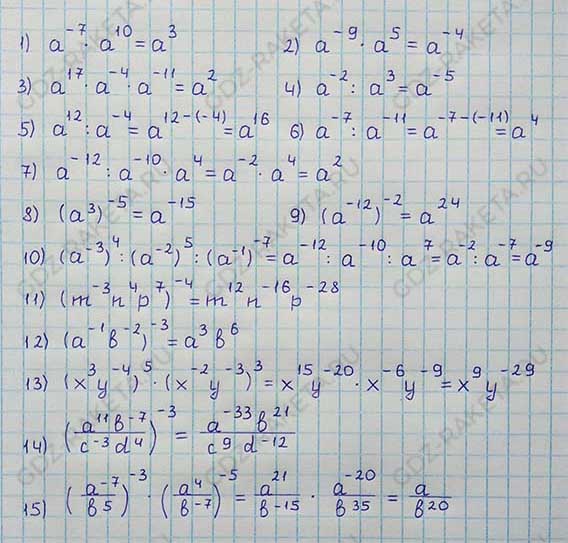 1) a⁻⁷ · a¹⁰ = a³ 2) a⁻⁹ · a⁵ = a⁻⁴
3) a¹⁷ · a⁻⁴ · a⁻¹¹ = a² 4) a⁻² : a³ = a⁻⁵
5) a¹² : a⁻⁴ = a¹²⁻⁽⁻⁴⁾ = a¹⁶ 6) a⁻⁷ : a⁻¹¹ = a⁻⁷⁻⁽⁻¹¹⁾ = a⁴
7) a⁻¹² : a⁻¹⁰ · a⁴ = a⁻² · a⁴ = a²
8) (a³)⁻⁵ = a⁻¹⁵ 9) (a⁻¹²)⁻² = a²⁴
10) (a⁻³)⁴ : (a⁻²)⁵ : (a⁻¹)⁻⁷ = a⁻¹² : a⁻¹⁰ : a⁷ = a⁻² : a⁻⁷ = a⁻⁹
11) (m⁻³n⁴p⁷)⁻⁴ = m¹²n⁻¹⁶p⁻²⁸
12) (a⁻¹в⁻²)⁻³ = a³в⁶
13) (x³y⁻⁴)⁵ · (x⁻²y⁻³)³ = x¹⁵y⁻²⁰ · x⁻⁶y⁻⁹ = x⁹y⁻²⁹
14) (a¹¹в⁻⁷/c⁻³d⁴)⁻³ = a⁻³³в²¹/c⁹d⁻¹²
15) (a⁻⁷/в⁵)⁻³ · (a⁴/в⁻⁷)⁻⁵ = a²¹/в⁻¹⁵ · a⁻²⁰/в³⁵ = a/в²⁰
GDZ-RAKETA.RU